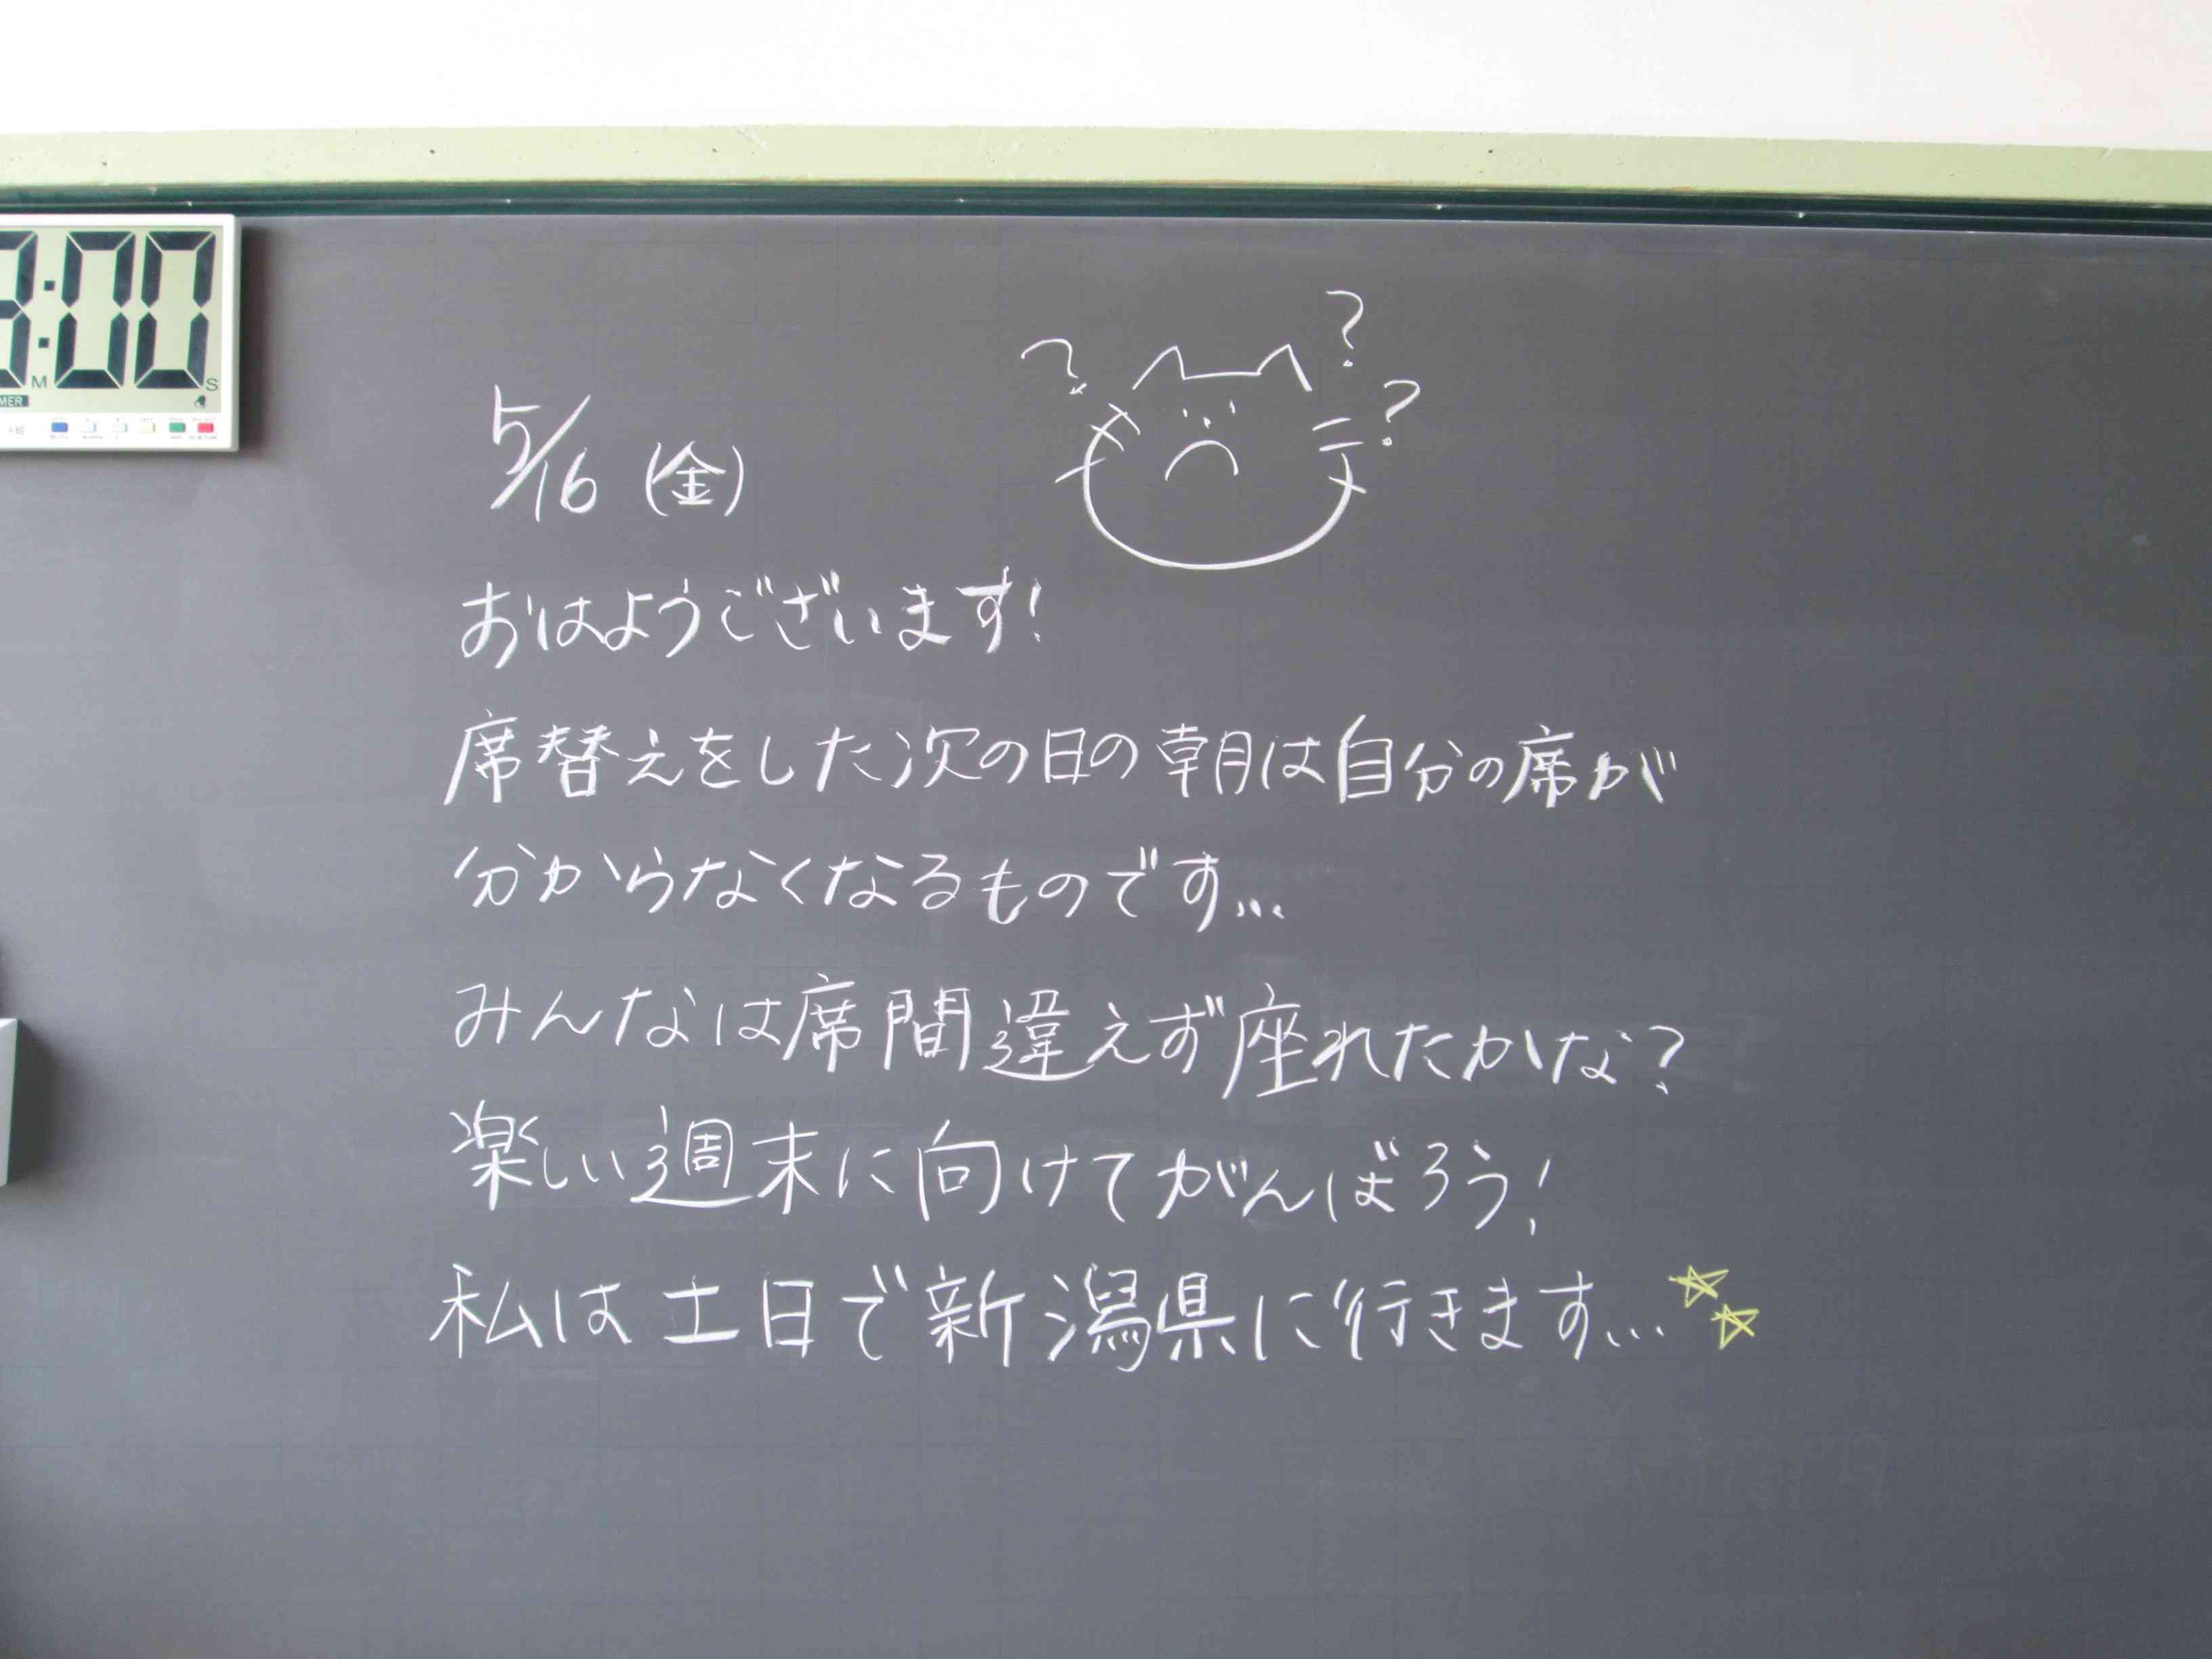 :00
M
S
MER
5/16 (金)
? ? ?
おはようございます!
席替えをした次の日の朝は自分の席が
分からなくなるものです...
みんなは席間違えず座れたかな?
楽しい週末に向けてがんばろう!
私は土日で新潟県に行きます...